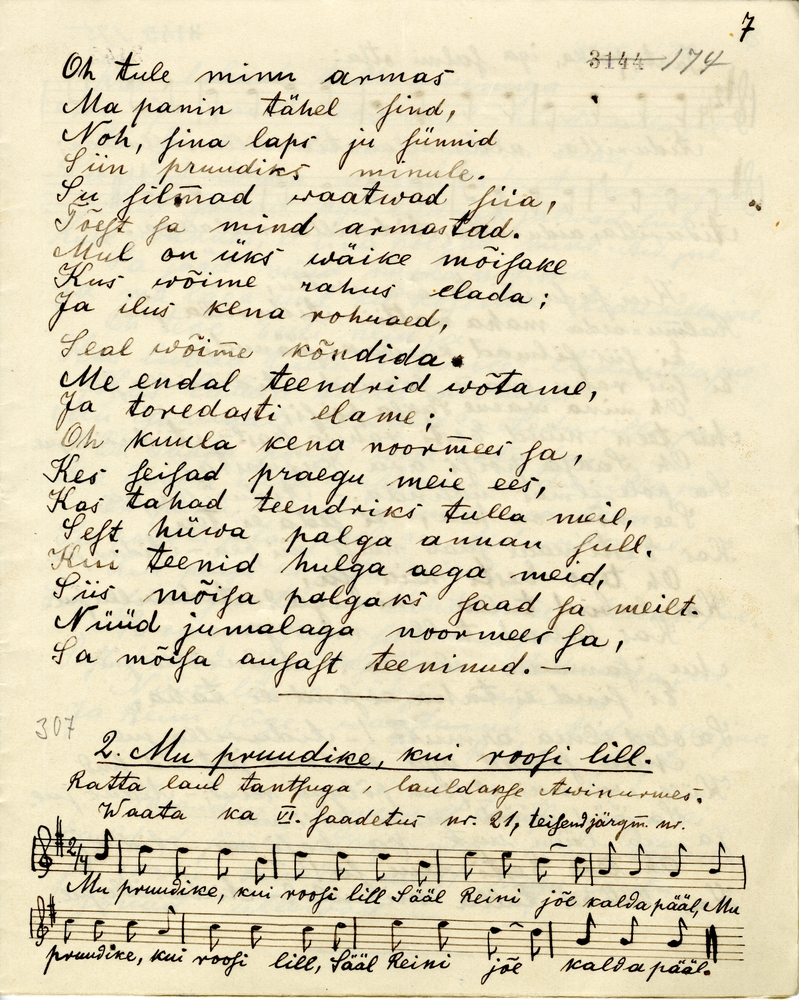 7
3144 174
Oh tule minu armas
Ma panin tähel sind,
Noh, sina laps ju sünnid
Siin pruudiks minule.
Su silmad waatwad siia,
Tõest sa mind armastad.
Mul on üks wäike mõisake
Kus wõime rahus elada;
Ja ilus kena rohuaed,
Seal wõime kõndida.
Me endal teendrid wõtame,
Ja toredasti elame;
Oh kuula kena noormees sa,
Kes seisad praegu meie ees,
Kas tahad teendriks tulla meil,
Sest hüwa palga annan sull.
Kui teenid hulga aega meid,
Siis mõisa palgaks saad sa meilt.
Nüüd jumalaga noormees sa,
Sa mõisa ausast teeninud. —
307
2. Mu pruudike, kui roosi lill.
Ratta laul tantsuga, lauldakse Awinurmes.
Waata ka VI. saadetus nr. 21, teisendjärgm. nr.
2/4
Mu pruudike, kui roosi lill Sääl Reini jõe kalda pääl, Mu
pruudike, kui roosi lill, Sääl Reini jõe kalda pääl.